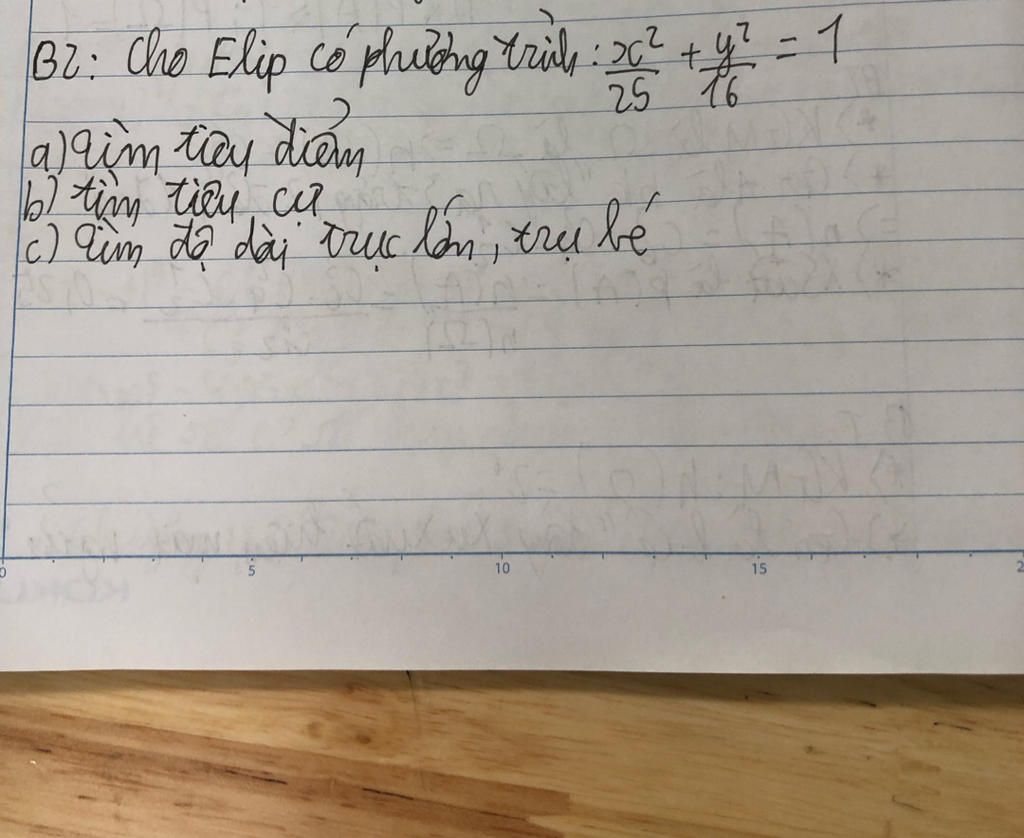 B2: Cho Elip có phương trình: x²/25 + y²/16 = 1
a) Tìm tiêu điểm
b) tìm tiêu cự
c) Tìm độ dài trục lớn, trụ bé
0 5 10 15 2